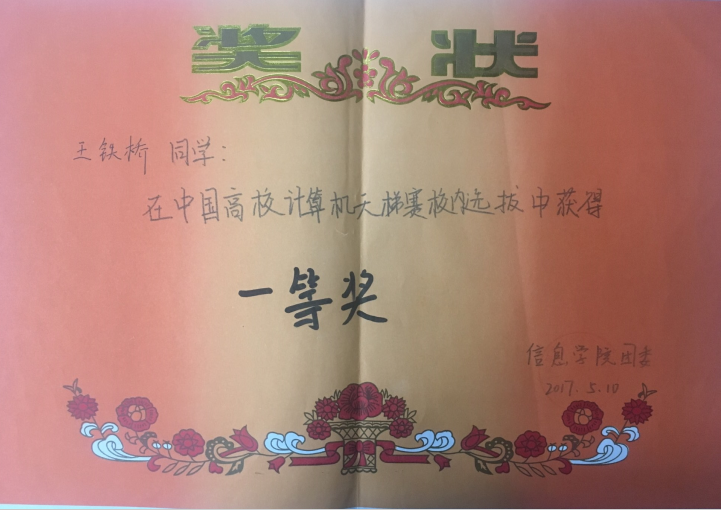 奖状
王铁桥 同学：
在中国高校计算机天梯赛校内选拔中获得
一等奖
信息学院团委
2017.5.10